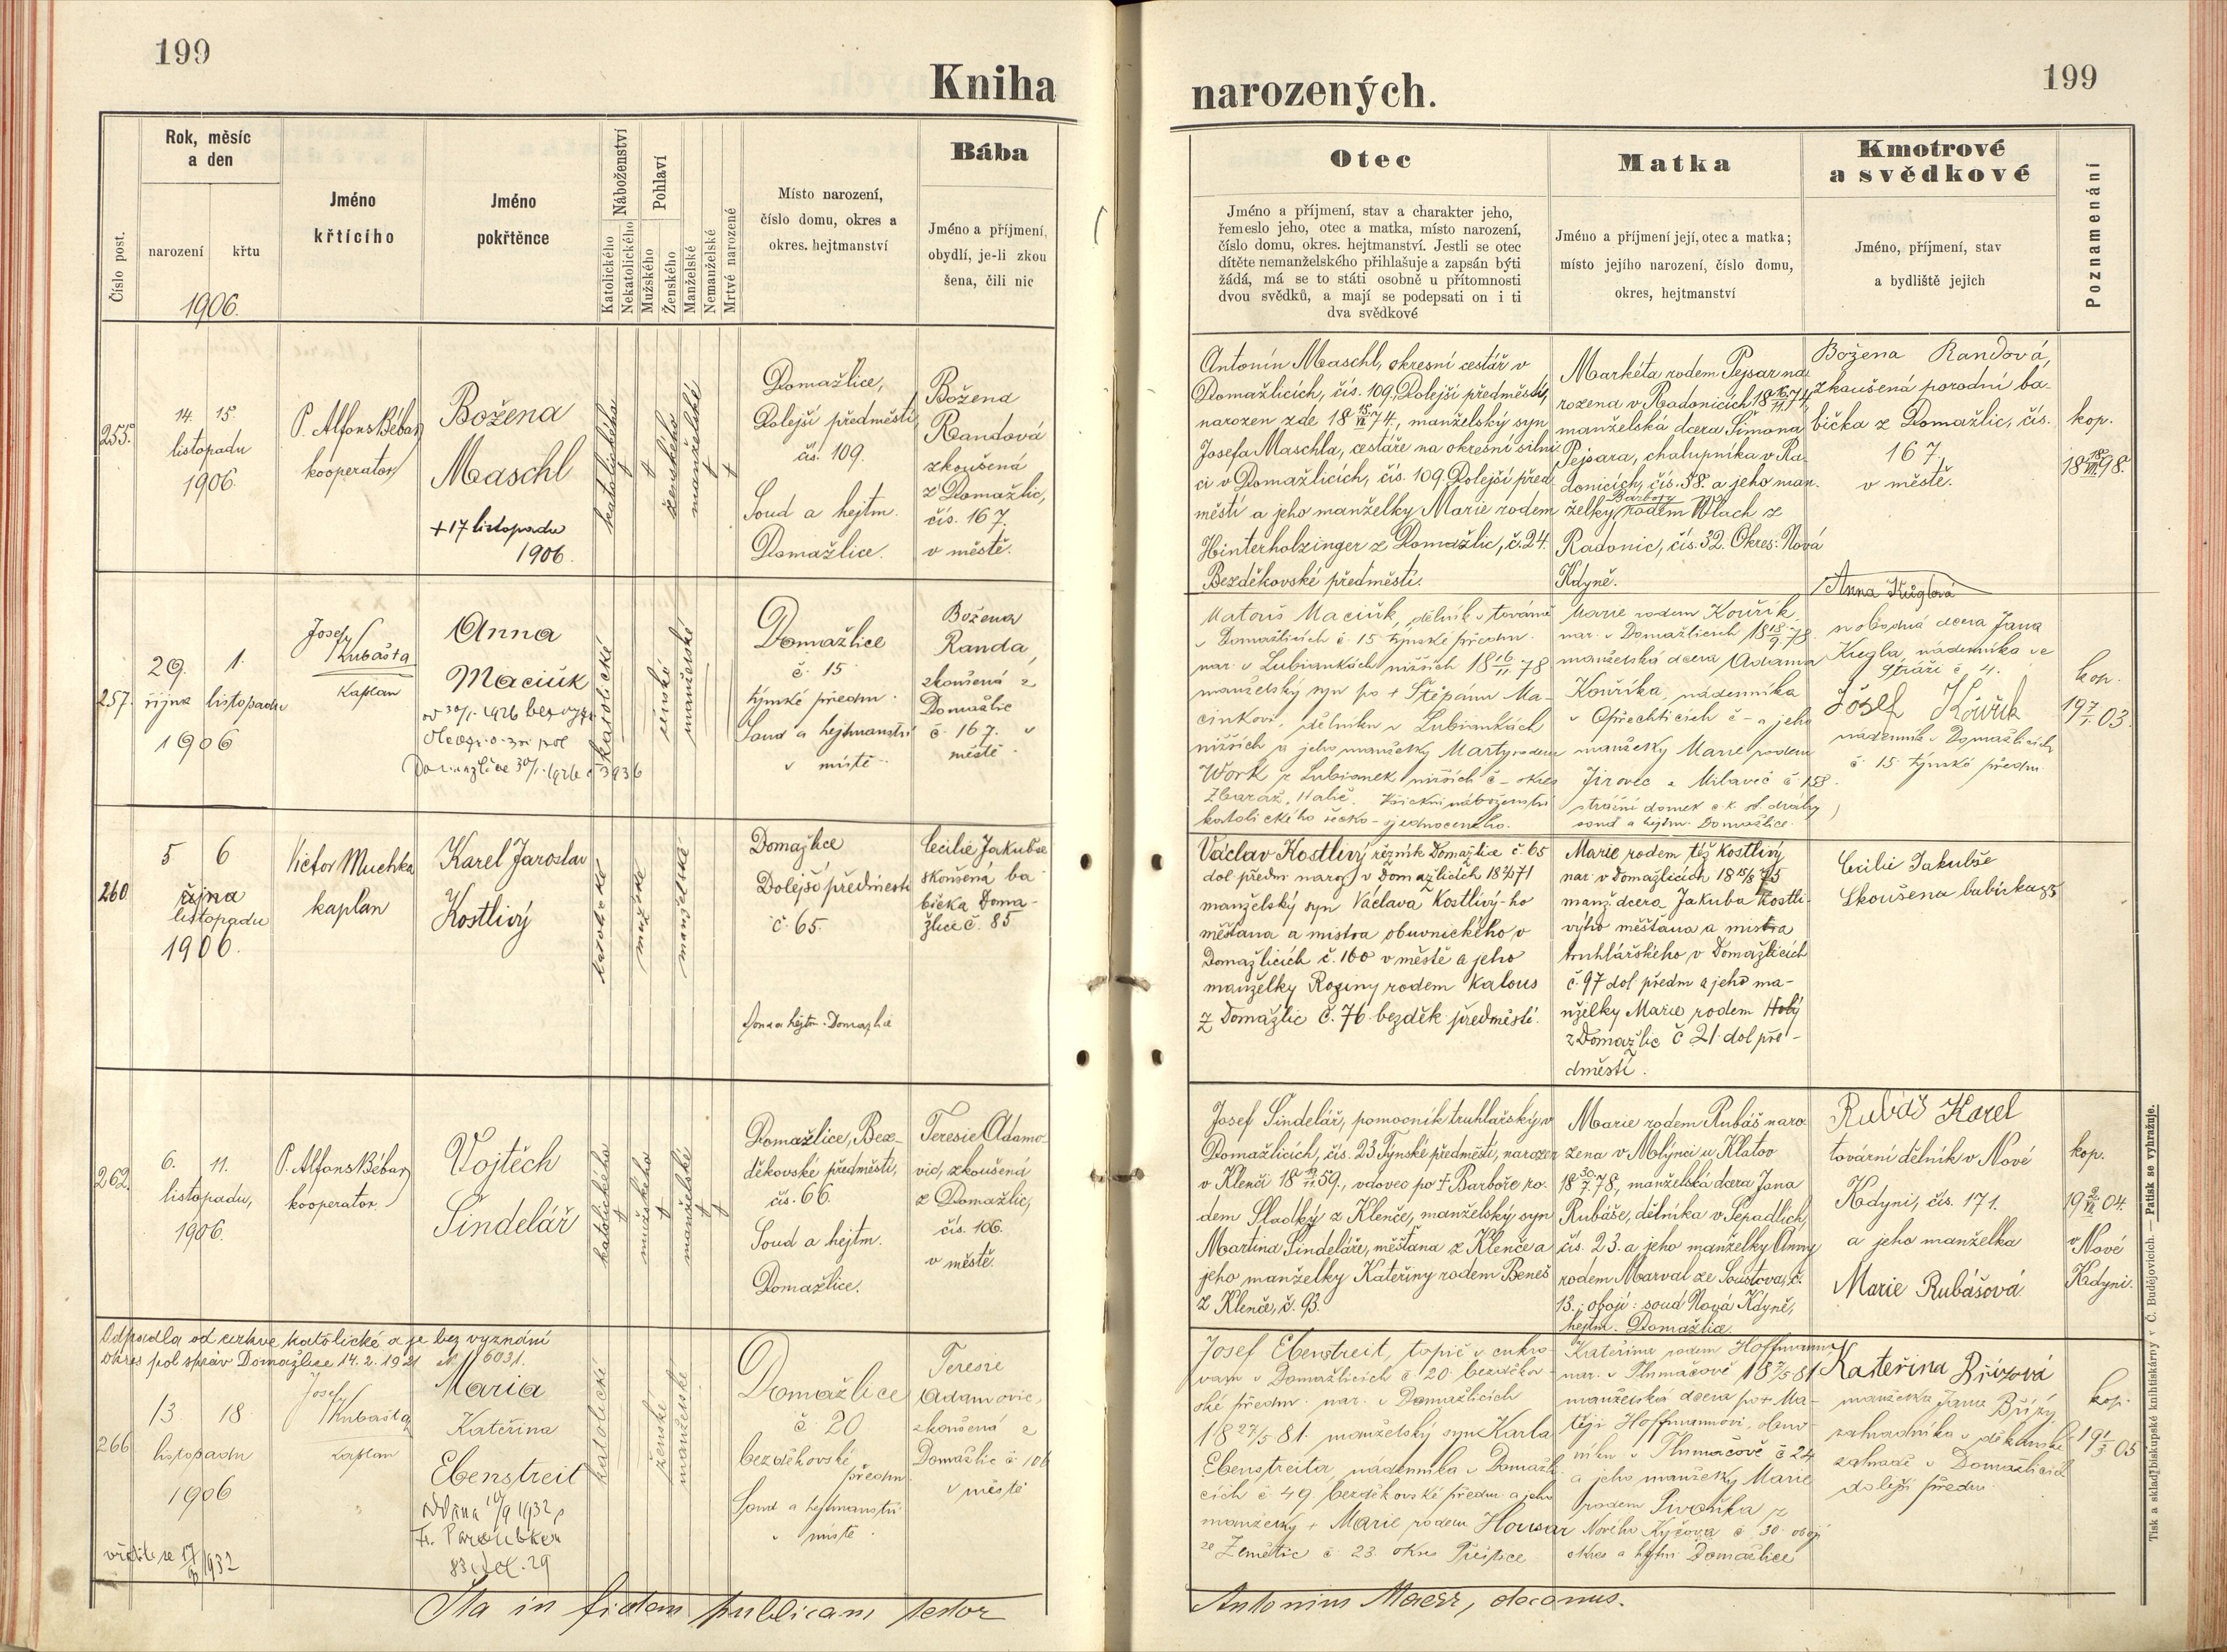 199
Kniha
Číslo post.
Rok, měsíc
a den
narození
křtu
1906.
Jméno
křtícího
Jméno
pokřtěnce
Náboženství
Katolického
Nekatolického
Pohlaví
Mužského
Ženského
Manželské
Nemanželské
Mrtvé narozené
Místo narození,
číslo domu, okres a
okres. hejtmanství
Bába
Jméno a příjmení,
obydlí, je-li zkou
šena, čili nic
255.
14. 15.
listopadu
1906.
P. Alfons Bébar,
kooperator
Božena
Maschl
+ 17 listopadu
1906.
katolického
ženského
manželské
Domažlice,
Dolejší předměstí,
čís. 109.
Soud a hejtm.
Domažlice.
Božena
Randová
zkoušená
z Domažlic,
čís. 167.
v městě.
257.
29. 1.
října listopadu
1906
Josef
Kubašta
kaplan
Anna
Maciuk
od 30/1. 1926 bez vyzn.
Domažlice 30/1. 1926 č 3936
katolické
ženské
manželské
Domažlice
č. 15
týnské předm.
Soud a hejtmanství
v místě.
Božena
Randa,
zkoušená z
Domažlic
č. 167. v
městě.
260
5 6
října
listopadu
1906.
Victor Muchka
kaplan
Karel Jaroslav
Kostlivý
katolické
mužské
manželské
Domažlice
Dolejší předměstí
č. 65.
Soud a hejtm. Domažlice
Cecilie Jakubše
skoušená ba
bička Doma-
žlice č. 85
262.
6. 11.
listopadu,
1906.
P. Alfons Bébar,
kooperator
Vojtěch
Šindelář
katolického
mužského
manželské
Domažlice, Bez-
děkovské předměstí,
čís. 66.
Soud a hejtm.
Domažlice.
Teresie Adamo-
vid, zkoušená
z Domažlic,
čís. 106.
v městě.
Odpadla od církve katolické a je bez vyznání
okres pol správ Domažlice 14. 2. 1921 č. 6031.
266
13 18
listopadu
1906
Josef
Kubašta
kaplan
Maria
Kateřina
Ebenstreit
1932
Fr. Paroubkem
katolické
ženské
manželské
Domažlice
č. 20
bezděkovské
předm.
Soud a hejtmanství
v místě.
Teresie
Adamovic,
zkoušená z
Domažlic č. 106
v městě
Ita in fidem publicam testor
199
narozených.
Otec
Jméno a příjmení, stav a charakter jeho,
řemeslo jeho, otec a matka, místo narození,
číslo domu, okres. hejtmanství. Jestli se otec
dítěte nemanželského přihlašuje a zapsán býti
žádá, má se to státi osobně u přítomnosti
dvou svědků, a mají se podepsati on i ti
dva svědkové
Matka
Jméno a příjmení její, otec a matka;
místo jejího narození, číslo domu,
okres, hejtmanství
Kmotrové
a svědkové
Jméno, příjmení, stav
a bydliště jejich
Poznamenání
Antonín Maschl, okresní cestář v
Domažlicích, čís. 109, Dolejší předměstí,
narozen zde 18 15/VI 74., manželský syn
Josefa Maschla, cestáře na okresní silni
ci v Domažlicích, čís. 109. Dolejší před
městí a jeho manželky Marie rodem
Hinterholzinger z Domažlic, č. 24.
Bezděkovské předměstí.
Markéta rodem Pejsar na
rozena v Radonicích 18 16/11 74,
manželská dcera Šimona
Pejsara, chalupníka v Ra
donicích, čís. 58. a jeho man
želky Barbory rodem Wlach z
Radonic, čís. 32. Okres: Nová
Kdyně.
Božena Randová,
zkoušená porodní ba-
bička z Domažlic, čís.
167.
v městě.
kop.
18 18/VII 98.
Matouš Maciuk, dělník v továrně
v Domažlicích č. 15 týnské předm.
nar. v Lubiankách nižších 18 16/11 78
manželský syn po + Štěpánu Ma-
ciukovi, dělníku v Lubiankách
nižších a jeho manželky Marty rodem
Work z Lubianek nižších č – okres
Zbaraž, Halič. Všickni náboženství
katolického řecko-sjednoceného.
Marie rodem Kouřík,
nar. v Domažlicích 18 18/9 78
manželská dcera Adama
Kouříka, nádenníka
v Oprechticích č – a jeho
manželky Marie rodem
Jirovec z Milaveč č. 158.
strážní domek c. k. st. dráhy
soud a hejtm. Domažlice.
Anna Kuglová
svobodná dcera Jana
Kugla, nádenníka ve
Stráži č. 4.
Josef Kouřik
nádenník v Domažlicích
č. 15 týnské předm
kop.
19 7/1. 03.
Václav Kostlivý řezník Domažlice č. 65
dol. předm. naroz v Domažlicích 1871
manželský syn Václava Kostlivý-ho
měšťana a mistra obuvnického v
Domažlicích č. 160 v městě a jeho
manželky Roziny rodem Kalous
z Domažlic č. 76 bezděk předměstí.
Marie rodem též Kostlivý
nar. v Domažlicích 18 15/8 75
manž. dcera Jakuba Kostli-
vého měšťana a mistra
truhlářského v Domažlicích
č. 97 dol předm a jeho ma-
nželky Marie rodem Holý
z Domažlic č 21. dol pře-
dměstí.
Cecilie Jakubše
Skoušena babička 85
Josef Šindelář, pomocník truhlářský v
Domažlicích, čís. 23. Týnské předměstí, narozen
v Klenčí 18 59., vdovec po + Barboře ro-
dem Sladký z Klenče, manželský syn
Martina Šindeláře, měšťana z Klenče a
jeho manželky Kateřiny rodem Beneš
z Klenče, č. 93.
Marie rodem Rubáš naro-
zena v Mlýnci u Klatov
18 30/7. 78., manželská dcera Jana
Rubáše, dělníka v Sepadlích,
čís. 23. a jeho manželky Anny
rodem Marval ze Soustova, č.
13.; obojí: soud Nová Kdyně,
hejtm. Domažlice.
Rubáš Karel
tovární dělník v Nové
Kdyni, čís. 171.
a jeho manželka
Marie Rubášová
kop.
19 2/VI. 04.
v Nové
Kdyni.
Josef Ebenstreit, topič v cukro-
varu v Domažlicích č. 20 bezděkov-
ské předm. nar. v Domažlicích
18 27/5 81. manželský syn Karla
Ebenstreita nádenníka v Domažli-
cích č. 49 bezděkovské předm. a jeho
manželky + Marie rodem Housar
ze Zemětic č. 23. okres Přeštice
Kateřina rodem Hoffmann
nar. v Tlumačově 18 81
manželská dcera po + Ma-
těji Hoffmannovi, obuv-
níku v Tlumačově č 24
a jeho manželky Marie
rodem Pivoňka z
Nového Kyčova č. 30. obojí
okres a hejtm. Domažlice
Kateřina Břízová
manželka Jana Břízy,
zahradníka v děkanské
zahradě v Domažlicích
dolejší předm.
kop.
19 1/3 05
Antonius Maess, decanus.
Tisk a sklad biskupské knihtiskárny v Č. Budějovicích. — Patisk se vyhražuje.